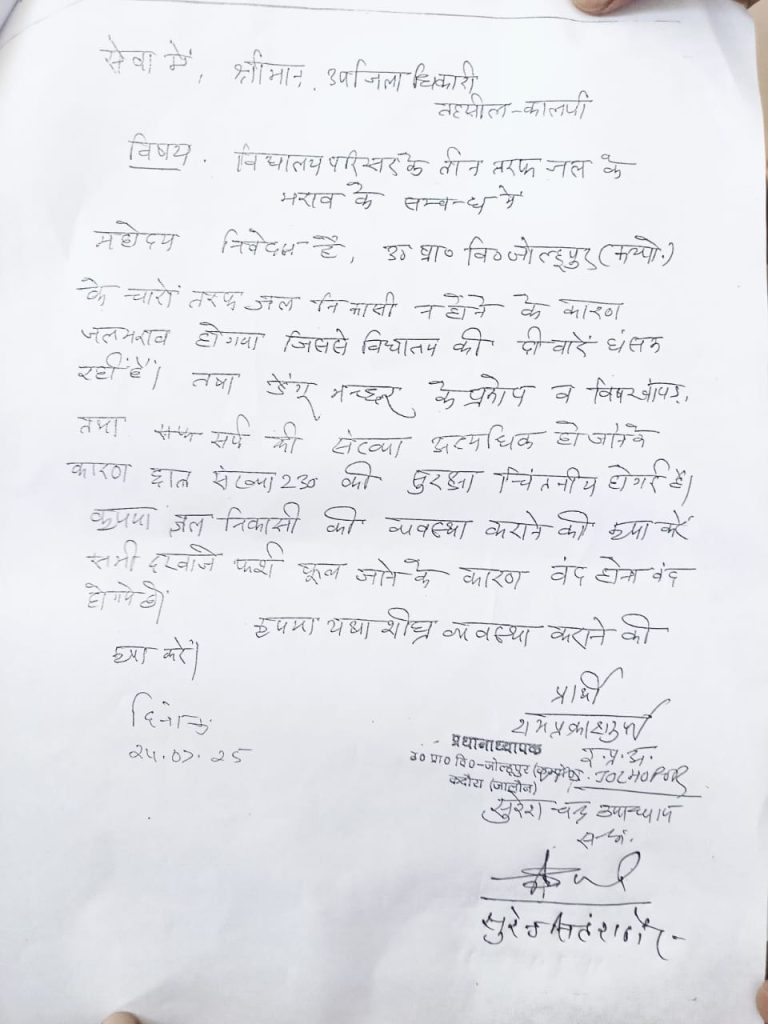 सेवा में, श्रीमान, उपजिलाधिकारी
तहसील-कालपी
विषय. विद्यालय परिसर के तीन तरफ जल के
भराव के सम्बन्ध में
महोदय निवेदन है, उ० प्रा० वि० जोल्हूपुर (कम्पो.)
के चारों तरफ जल निकासी न होने के कारण
जलभराव हो गया जिससे विद्यालय की दीवारें धंसक
रहीं हैं। तथा डेंगू मच्छर के प्रकोप व विषखापड़,
तथा सर्प की संख्या अत्यधिक हो जाने के
कारण छात्र संख्या 230 की सुरक्षा चिंतनीय हो गई है।
कृपया जल निकासी की व्यवस्था कराने की कृपा करें
सभी दरवाजे फर्श फूल जाने के कारण बंद होना बंद
हो गये हैं।
कृपया यथा शीघ्र व्यवस्था कराने की
कृपा करें।
प्रार्थी
दिनांक
25.07.25
प्रधानाध्यापक
इ.प्र.अ.
उ० प्रा० वि०-जोल्हूपुर (कम्पो०) JOLHUPUR
कदौरा (जालौन)
सुरेश चन्द्र उपाध्याय
स०अ.